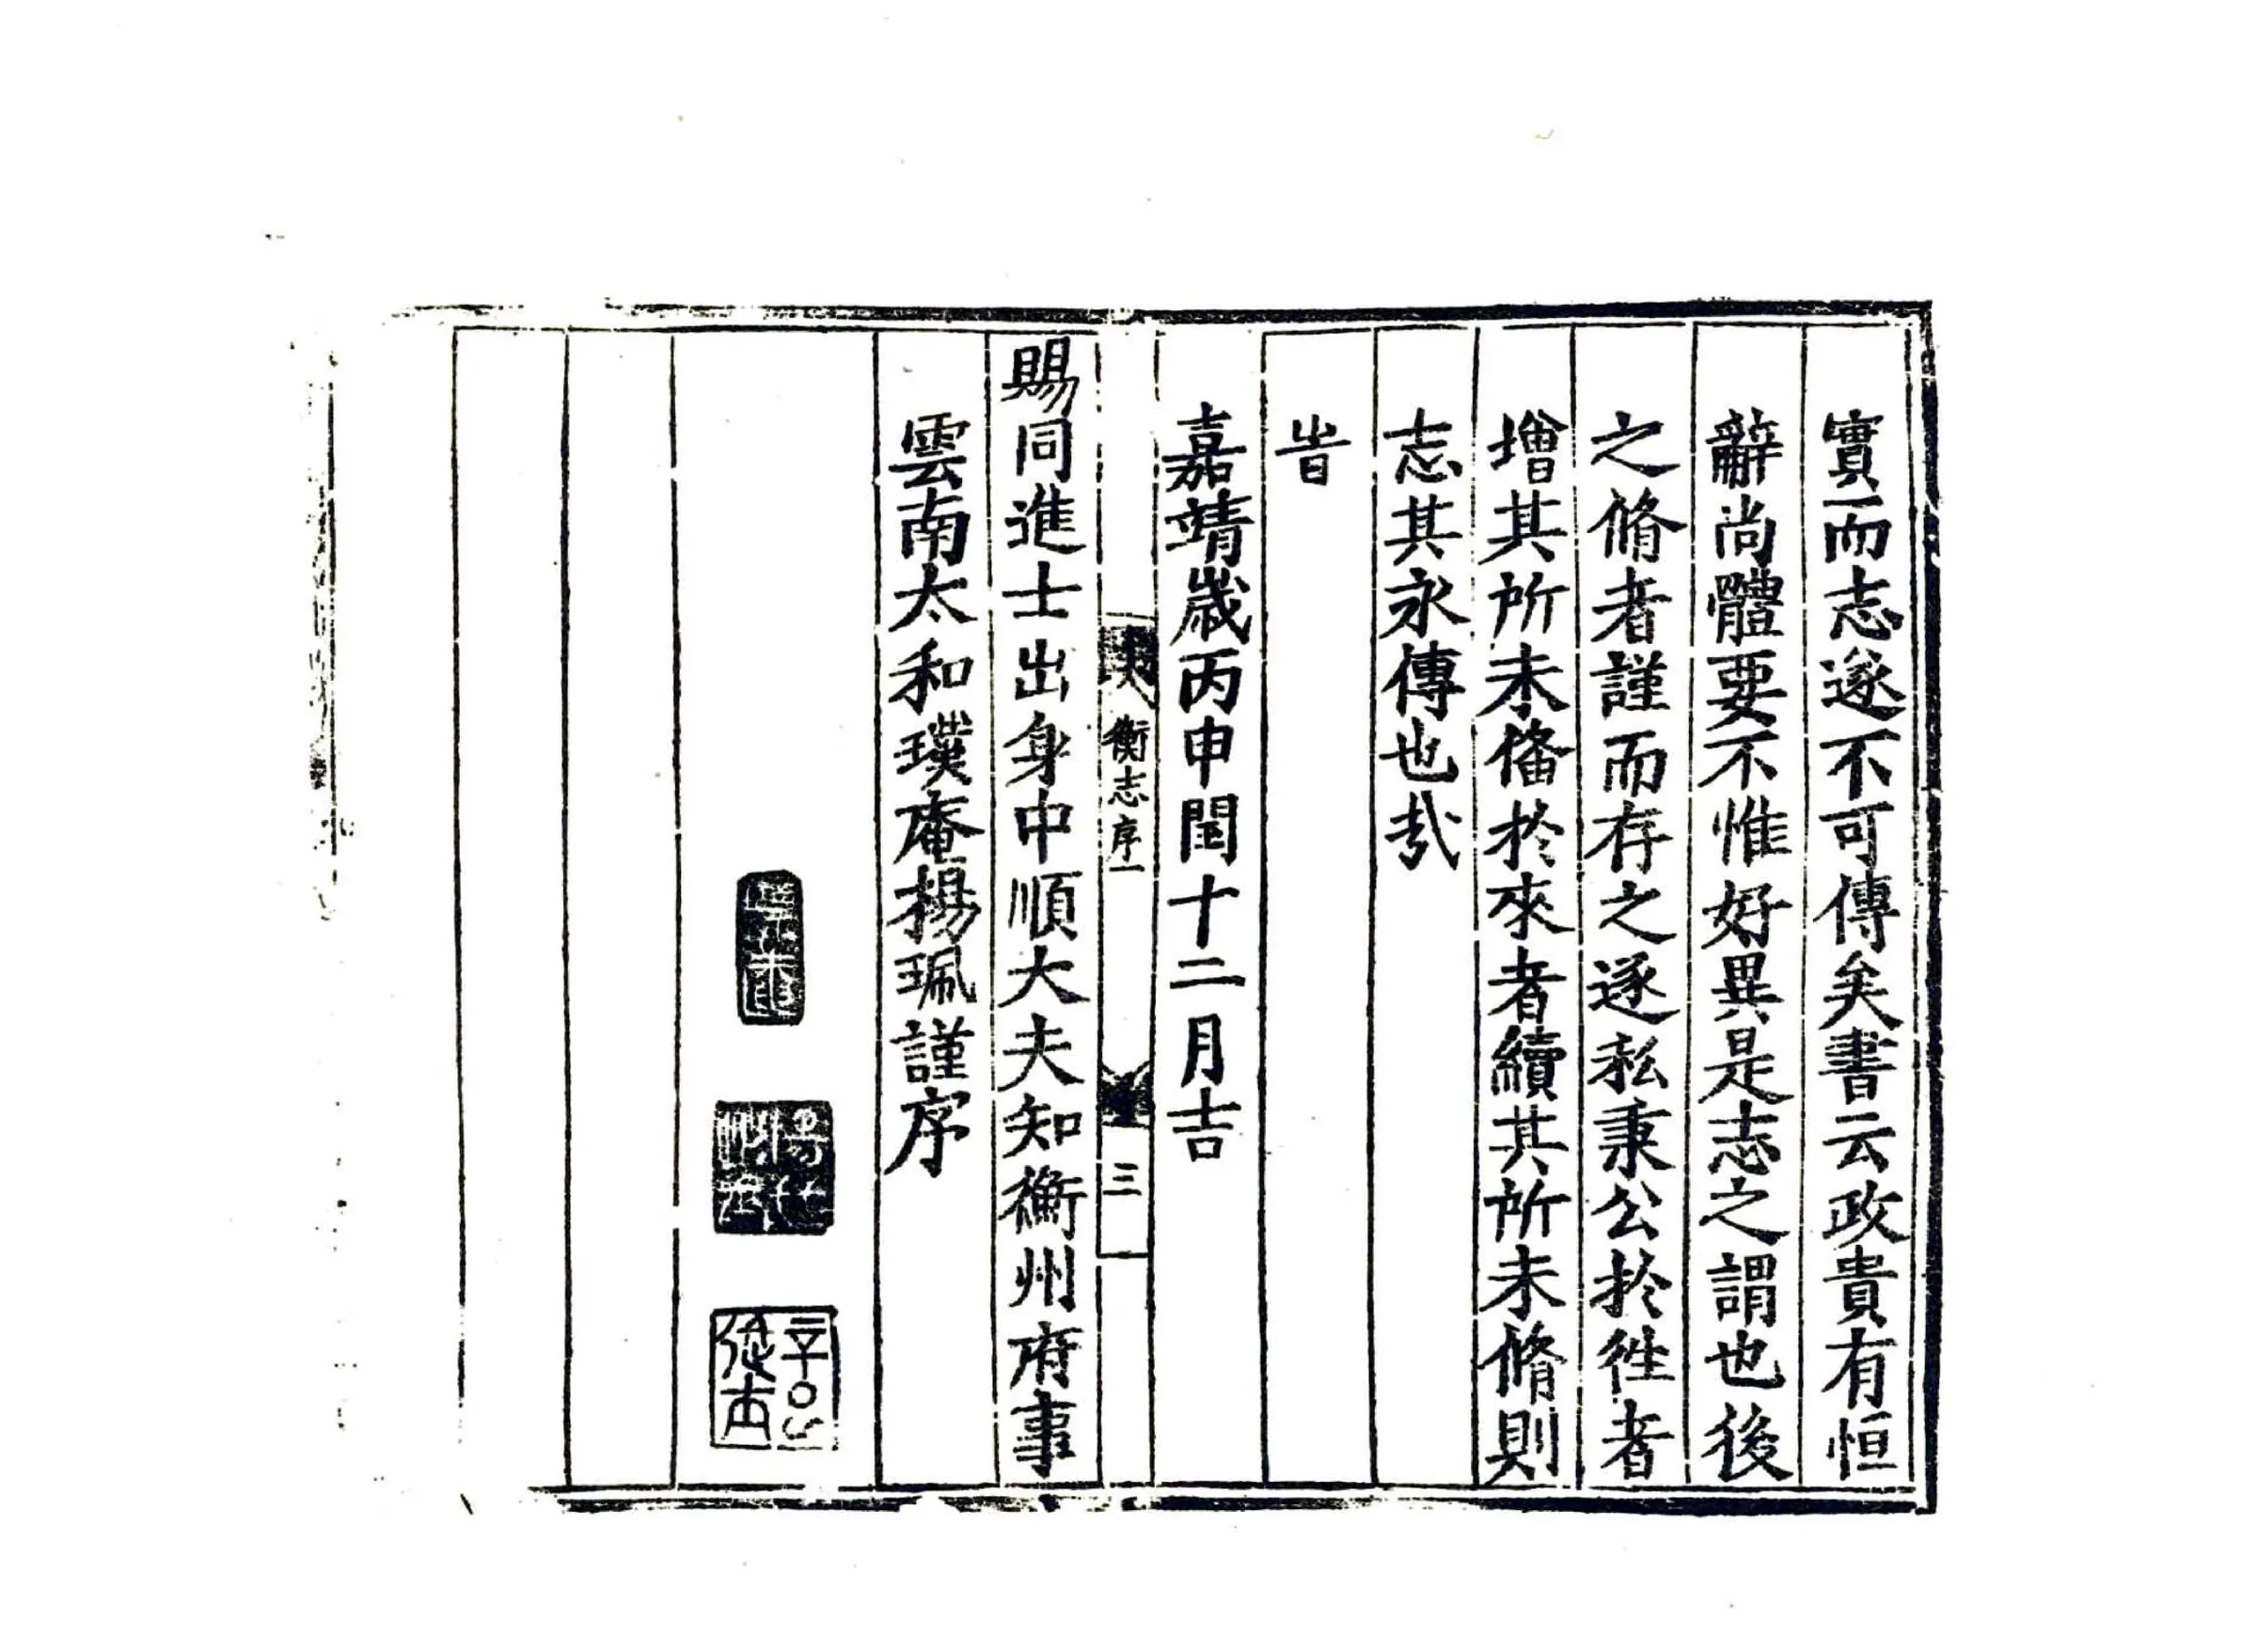 實而志遂不可傳矣書云政貴有恒
辭尚體要不惟好異是志之謂也後
之脩者謹而存之逐私秉公於徃者
增其所未備於來者續其所未脩則
志其永傳也㢤
旹
嘉靖歲丙申閏十二月吉
衡志序一
三
賜同進士出身中順大夫知衡州府事
雲南太和璞庵楊珮謹序